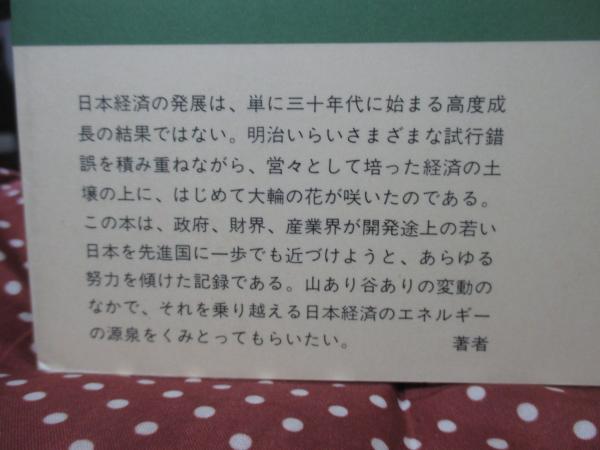 日本経済の発展は、単に三十年代に始まる高度成
長の結果ではない。明治いらいさまざまな試行錯
誤を積み重ねながら、営々として培った経済の土
壌の上に、はじめて大輪の花が咲いたのである。
この本は、政府、財界、産業界が開発途上の若い
日本を先進国に一歩でも近づけようと、あらゆる
努力を傾けた記録である。山あり谷ありの変動の
なかで、それを乗り越える日本経済のエネルギー
の源泉をくみとってもらいたい。　　　　著者